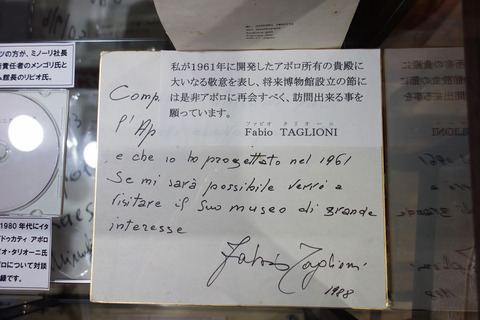 ツの方が、ミノーリ社長
責任者のメンゴリ氏と
館長のリビオ氏。
私が1961年に開発したアポロ所有の貴殿に
大いなる敬意を表し、将来博物館設立の節に
は是非アポロに再会すべく、訪問出来る事を
願っています。
ファビオ タリオーニ
Fabio TAGLIONI
Comp.
l'Ap
e che io ho progettato nel 1961
Se mi sarà possibile verrò a
visitare il suo museo di grande
interesse
Fabio Taglioni
1988
1980年代にイタ
ドゥカティ アポロ
オ・タリオーニ氏
ロについて対談
録です。